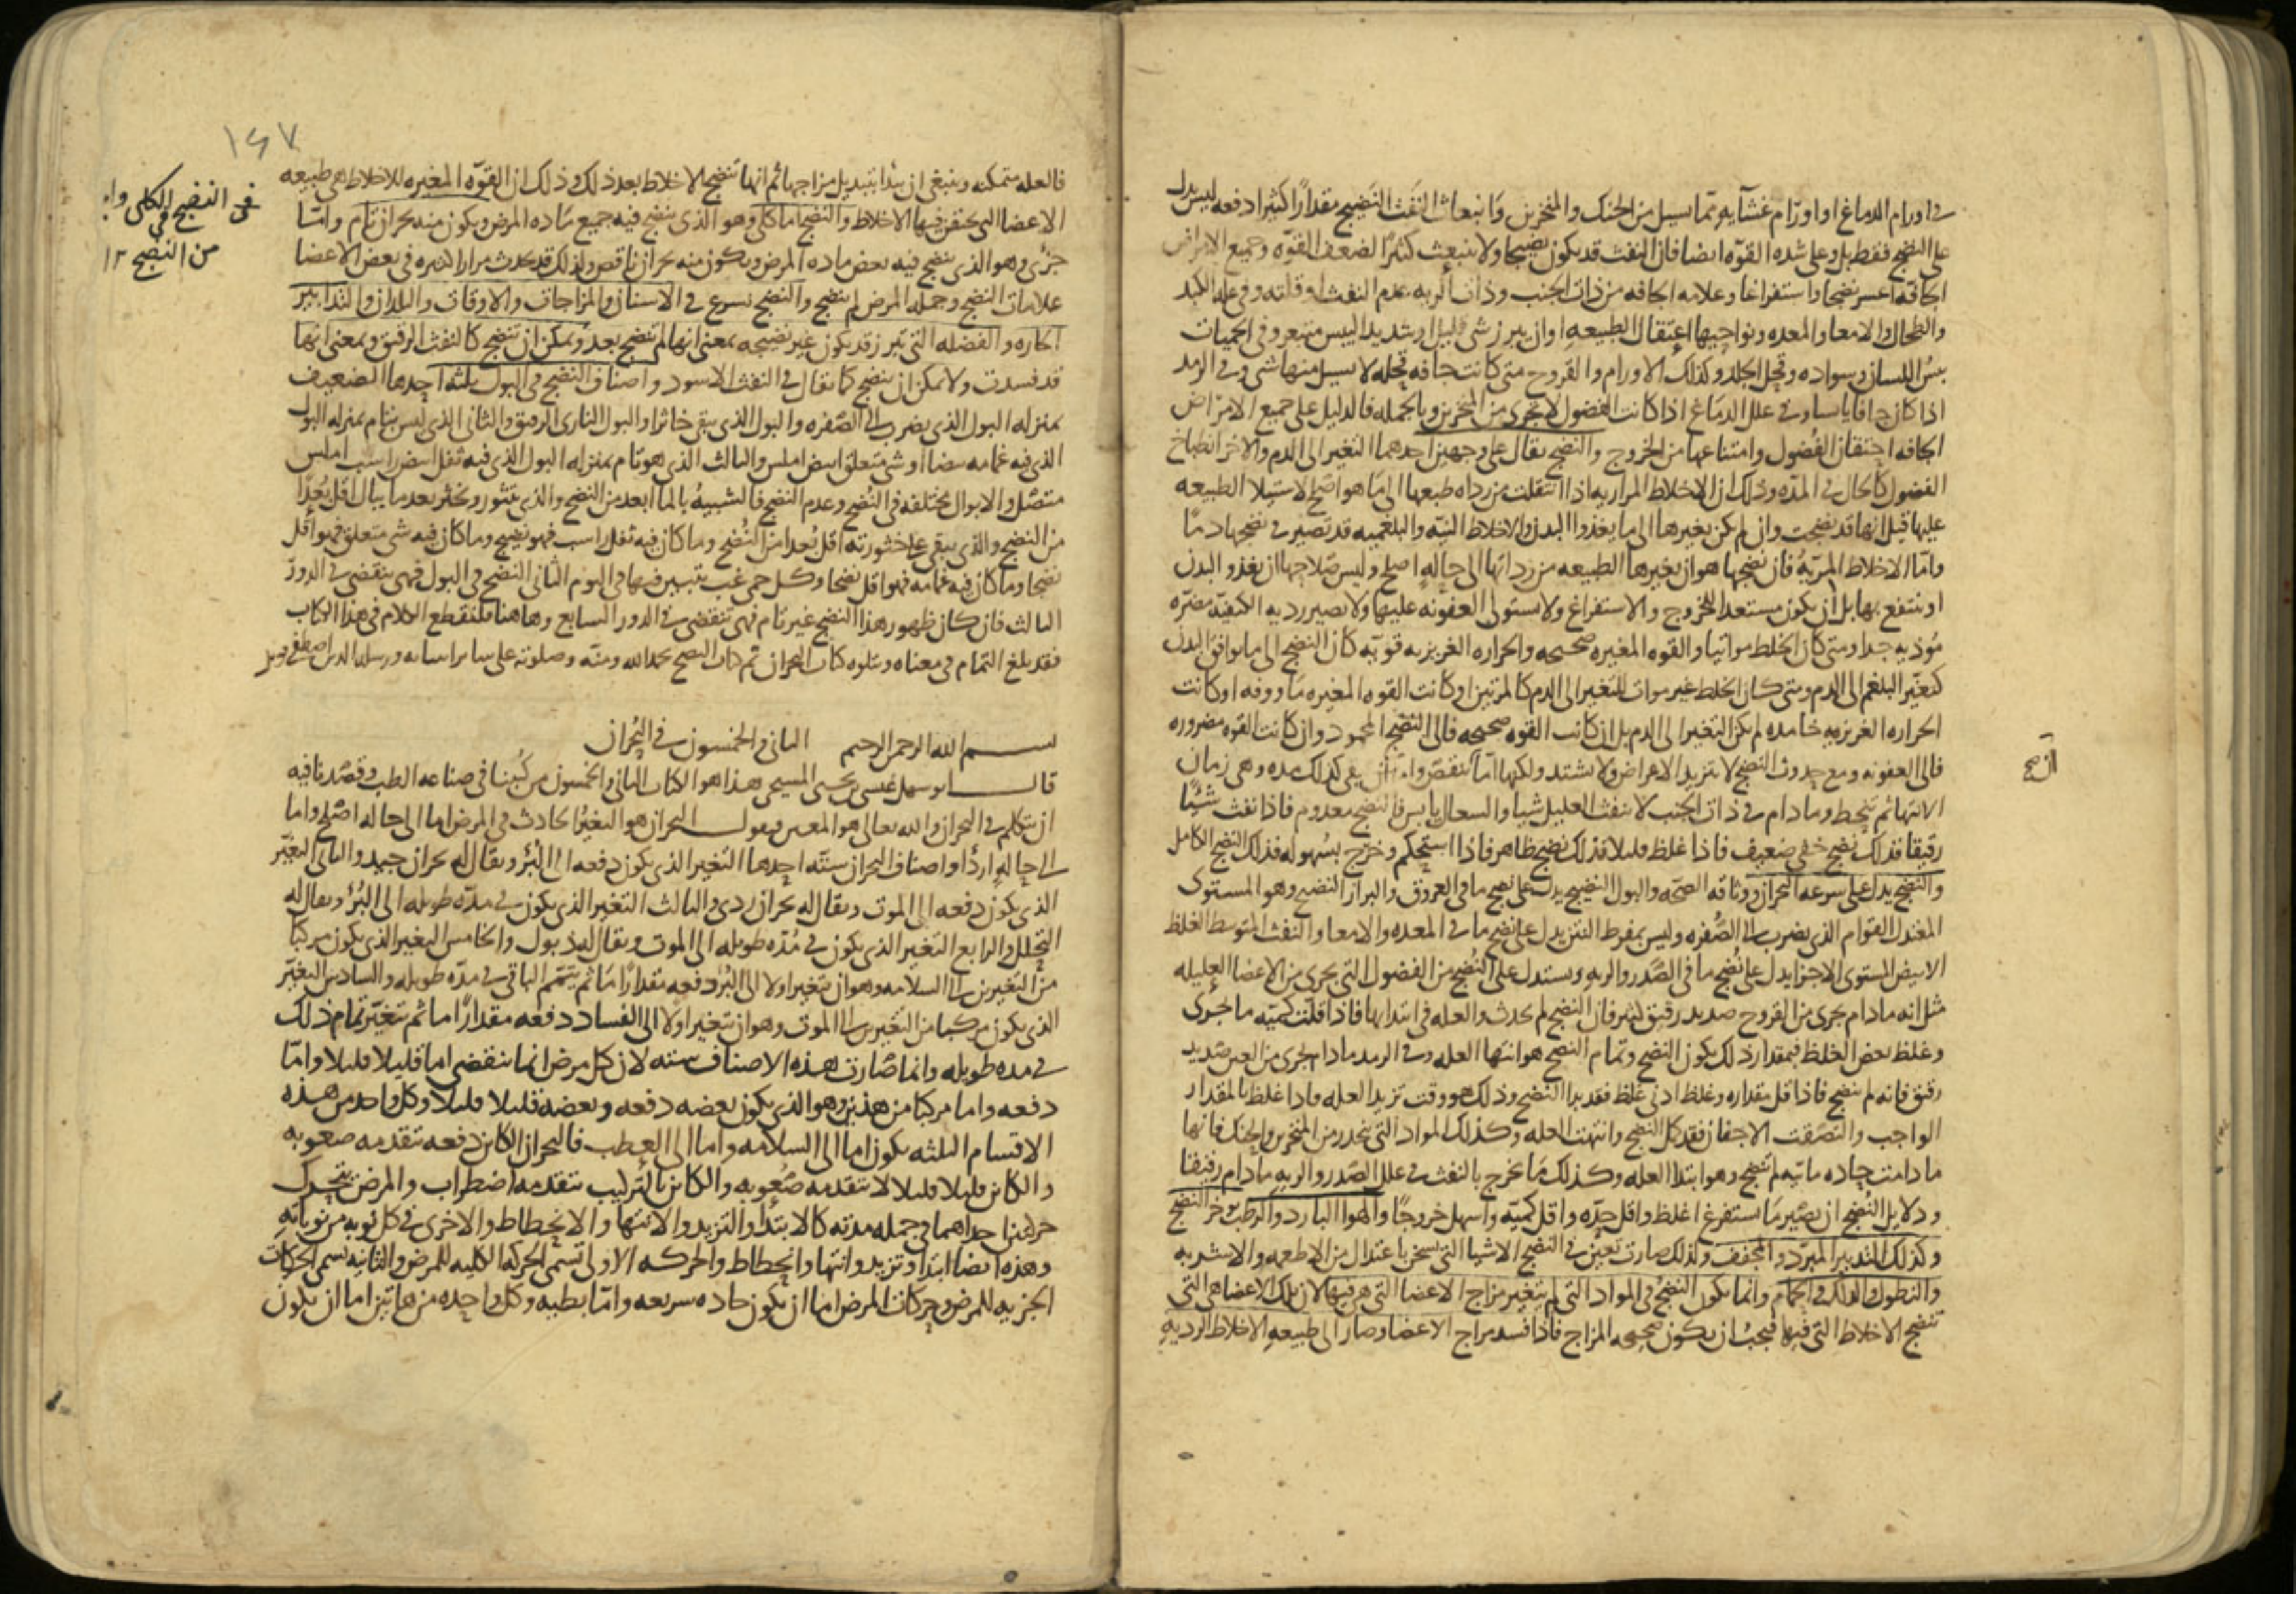 في اورام الدماغ او اورام غشآيه وتما سيل من الحنك والمنخرين وانبعاث النفث النضيج مقدارًا كثيرا دفعه ليس يدل
على النضج فقط بل وعلى شده القوّه ايضا فان النفث قد يكون نضيجا ولا ينبعث كثيرًا لضعف القوّه وجميع الامراض
الجافة اعسر نضجا واستفراغا وعلامه الجافه من ذات الجنب وذات الريه عدم النفث او قلته وفي علل الكبد
والطحال والامعا والمعده ونواحيها اعتقال الطبيعه او ان يبرز شي قليل او شديد اليبس متبعر وفي الحميات
يبس اللسان وسواده وقحل الجلد وكذلك الاورام والقروح متى كانت جافه قحله لا يسيل منها شي وفي الرمد
اذا كان جافا يابسا وفي علل الدماغ اذا كانت الفضول لا تجرى من المنخرين وبالجمله فالدليل على جميع الامراض
الجافه احتقان الفضول وامتناعها من الخروج والنضج يقال على وجهين احدهما التغير الى الدم والاخر انطباخ
الفضول كالحال في المدّه وذلك ان الاخلاط المراريه اذا انتقلت من رداه طبعها الى ما هو اصلح لاستيلا الطبيعه
عليها قيل انها قد نضجت وان لم يكن تغيرها الى ما يغذوا البدن والاخلاط النيّه والبلغميه قد تصير في نضجها دمًا
وامّا الاخلاط المرّيّه فان نضجها هو ان تغيرها الطبيعه من رداتها الى حالهٍ اصلح وليس صلاحها ان تغذو البدن
او ينتفع بها بل ان يكون مستعدا للخروج والاستفراغ ولا تستولى العفونه عليها ولا تصير رديه الكيفيّه مضرّه
مؤذيه جدا ومتى كان الخلط مواتيا والقوه المغيره صحيحه والحراره الغريزيه قويّه كان النضج الى ما يوافق البدن
كتغيّر البلغم الى الدم ومتى كان الخلط غير موات للتغير الى الدم كالمرتين او كانت القوه المغيره ماووفه او كانت
الحراره الغريزيه خامده لم يكن التغير الى الدم بل ان كانت القوه صحيحه فالى النضج المحمود وان كانت القوه مضروره
فالى العفونه ومع حدوث النضج لا تتزيد الاعراض ولا تشتد ولكنها امّا تنقص واما ان يبقى كذلك مده وهي زمان
الانتها ثم تنحط وما دام في ذات الجنب لا ينفث العليل شيا والسعال يابس فالنضج معدوم فاذا نفث شيئًا
رقيقا فذلك نضج خفي ضعيف فاذا غلظ قليلا فذلك نضج ظاهر فاذا استحكم وخرج بسهوله فذلك النضج الكامل
والنضج يدل على سرعه البحران ووثاقه الصحّه والبول النضيج يدل على نضج ما في العروق والبراز النضيج وهو المستوى
المعتدل القوام الذي يضرب الى الصُّفره وليس بمفرط النتن يدل على نضج ما في المعده والامعا والنفث المتوسط الغلظ
الابيض المستوى الاجزا يدل على نُضج ما في الصّدر والريه ويستدل على النُضج من الفضول التي تجرى من الاعضا العليله
مثل انه ما دام يجرى من القروح صديد رقيق كثير فان النضج لم يحدث والعله في ابتدايها فاذا قلّت كميّه ما يجرى
وغلظ بعض الغلظ فبمقدار ذلك يكون النضج وتمام النضج هو انتها العله وفي الرمد مادام يجرى من العين صديد
رقيق فانه لم ينضج فاذا قل مقداره وغلظ ادنى غلظ فقد بدا النضج وذلك هو وقت تزيد العله فاذا غلظ بالمقدار
الواجب والتصقت الاجفان فقد كمل النضج وانتهت العله وكذلك المواد التي تنحدر من المنخرين والحنك فانها
ما دامت حاده مائيه لم تنضج وهو ابتدا العله وكذلك ما يخرج بالنفث في علل الصّدر والريه مادام رقيقا
ودلايل النُضج ان يصير ما يستفرغ اغلظ واقل حدّه واقل كميّه واسهل خروجًا والهوا البارد والرطب يوخر النضج
وكذلك التدبير المبرّد والمجفف ولذلك صارت تعين في النضج الاشيا التي تسخن باعتدال من الاطعمه والاشربه
والنطول والدلك والحمام وانما يكون النضج في المواد التي لم يتغير مزاج الاعضا التي هي فيها لان تلك الاعضا هي التي
تنضج الاخلاط التي فيها فيجب ان يكون صحيحه المزاج فاذا فسد مزاج الاعضا وصار الى طبيعهِ الاخلاط الرديهِ
ان صح
١٤٧
فالعله متمكنه وينبغى ان يبدا بتبديل مزاجها ثم انها تنضج الاخلاط بعد ذلك وذلك ان القوّه المغيره للاخلاط هي طبيعه
الاعضا التي يحتقن فيها الاخلاط والنضج اما كلى وهو الذى ينضج فيه جميع مَاده المرض ويكون منه بحران تام وامّا
جزئ وهو الذي ينضج فيه بعض ماده المرض ويكون منه بحران ناقص ولذلك قد يحدث مرارا كثيره في بعض الاعضا
علامات النضج وجمله المرض لم ينضج والنضج يسرع في الاسنان والمزاجات والاوقات والبلدان والتدابير
الحاره والفضله التي تبرز قد يكون غير نضيجه بمعنى انها لم تنضج بعد ويمكن ان تنضج كالنفث الرقيق وبمعنى انها
قد فسدت ولا يمكن ان ينضج كما يقال في النفث الاسود واصناف النضج في البول ثلثه احدها الضعيف
بمنزله البول الذي يضرب الى الصّفره والبول الذي يبقى خاثرا والبول النارى الرقيق والثانى الذي ليس بتام بمنزله البول
الذى فيه غمامه بيضا او شي متعلق ابيض املس والثالث الذي هو تام بمنزله البول الذى فيه ثفل ابيض راسب املس
متصل والابوال مختلفه في النُضج وعدم النضج فالشبيهُ بالما ابعد من النضج والذي يتثور ويخثر بعد ما يبال اقل بُعدًا
من النضج والذي يبقى على خثورته اقل بُعدا من النُضج وما كان فيه ثفل راسب فهو نضيج وما كان فيه شي متعلق فهو اقل
نضجا وما كان فيه غمامه فهو اقل نضجا وكل حمى غب يتبين فيها في اليوم الثانى النضج في البول فهى تنقضى في الدور
الثالث فان كان ظهور هذا النضج غير تام فهى تنقضى في الدور السابع وهاهنا فلنقطع الكلام في هذا الكتاب
فقد بلغ التمام في معناه ويتلوه كتاب البحران تم كتاب النضج بحمد الله ومنّه وصلوته على ساير انبيايه ورسله الذين اصطفى
في النضج الكلى
من النضج ١٢
بسم الله الرحمن الرحيم الثاني والخمسون في البُحران
قال ابو سهل عيسى بن يحيى المسيحى هذا هو الكتاب الثانى والخمسون من كُتبنا في صناعه الطب وقصْدنا فيه
ان نتكلم في البحران والله تعالى هو المعين ونقول البحران هو التغيُّر الحادث في المرض اما الى حاله اصْلح واما
الى حالهٍ اردأ واصناف البحران ستّه احدها التغير الذى يكون دفعه الى البُرؤ ويقال له بحران جيد والثانى التغيّر
الذي يكون دفعه الى الموت ويقال له بحران ردى والثالث التغير الذي يكون في مدّه طويله الى البُرؤ ويقال له
التحلل والرابع التغير الذي يكون في مُدّه طويله الى الموت ويقال له ذبول والخامس التغير الذي يكون مركبًا
من التغيرين الى السلامه وهو ان يتغير اولا الى البُرؤ دفعه مقدارًا مَا ثم يتمّم الباقى في مدّه طويله والسادس التغيّر
الذي يكون مركبا من التغيرين الى الموت وهو ان يتغير اولا الى الفساد دفعه مقدارًا ما ثم يتغيّر تمام ذلك
في مده طويله وانما صَارت هذه الاصناف سته لان كل مرض انما ينقضى اما قليلا قليلا وامّا
دفعه واما مركبا من هذين وهو الذي يكون بعضه دفعه وبعضه قليلا قليلا وكل واحد من هذه
الاقسام الثلثه يكون اما الى السلامه واما الى العطب فالبحران الكاين دفعه تتقدمه صعوبه
والكاين قليلا قليلا لا تتقدمه صُعُوبه والكاين بالتركيب تتقدمه اضطراب والمرض يتحرك
حركتين احداهما في جمله مدته كالابتدأ والتزيد والانتها والانحطاط والاخرى في كل نوبه من نوباته
وهذه ايضا ابتدا وتزيد وانتها وانحطاط والحركه الاولى تسمى الحركه الكليه للمرض والثانيه تسمى الحركات
الجزييه للمرض وحركات المرض اما ان يكون حاده سريعه وامّا بطيه وكل واحده من هاتين اما ان يكون